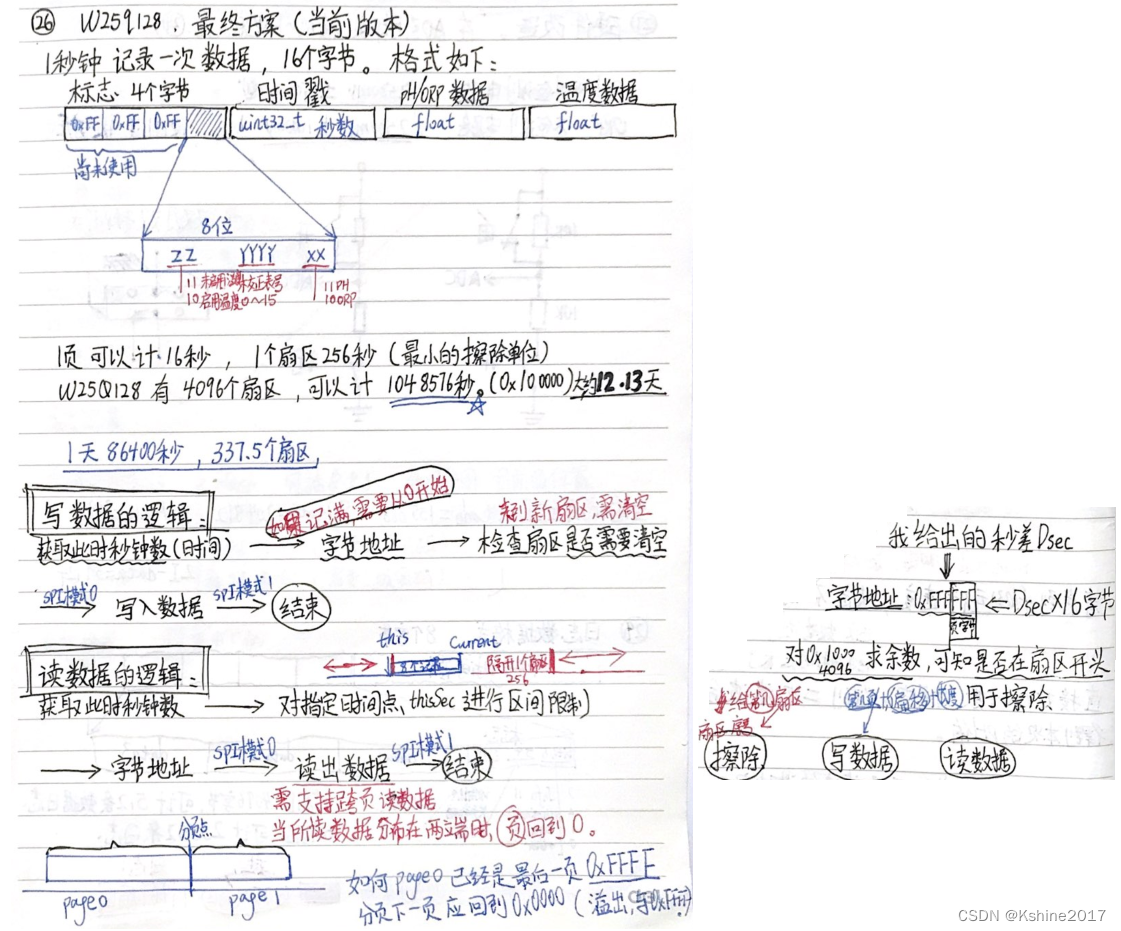 ㉖ W25Q128. 最终方案(当前版本)
1秒钟 记录一次数据, 16个字节。格式如下:
标志·4个字节 时间戳 pH/ORP数据 温度数据
0xFF 0xFF 0xFF uint32_t 秒数 float float
尚未使用
8位
ZZ YYYY XX
11未启用温度 校正表号 11PH
10启用温度 0~15 10ORP
1页可以计16秒, 1个扇区256秒(最小的擦除单位)
W25Q128有4096个扇区, 可以计1048576秒。(0x100000)大约12.13天
1天86400秒, 337.5个扇区,
写数据的逻辑: 如果记满,需要从0开始 来到新扇区,需清空
获取此时秒钟数(时间) → 字节地址 → 检查扇区是否需要清空
SPI模式0 写入数据 SPI模式1 结束
this Current
读数据的逻辑: 8个记录 隔开1个扇区
256
获取此时秒钟数 → 对指定时间点、thisSec进行区间限制
→ 字节地址 SPI模式0 读出数据 SPI模式1 结束
需支持跨页读数据
当所读数据分布在两端时, 页回到0。
分页点
page0 page1
如何page0已经是最后一页0xFFFF
分页下一页应回到0x0000(溢出,与0xFFFF)
我给出的秒差Dsec
字节地址:0xFFFFFF ⇐ Dsec×16字节
对0x1000求余数,可知是否在扇区开头
4096
给第几扇区 第几页+偏移+长度 用于擦除
擦除 写数据 读数据
CSDN @Kshine2017